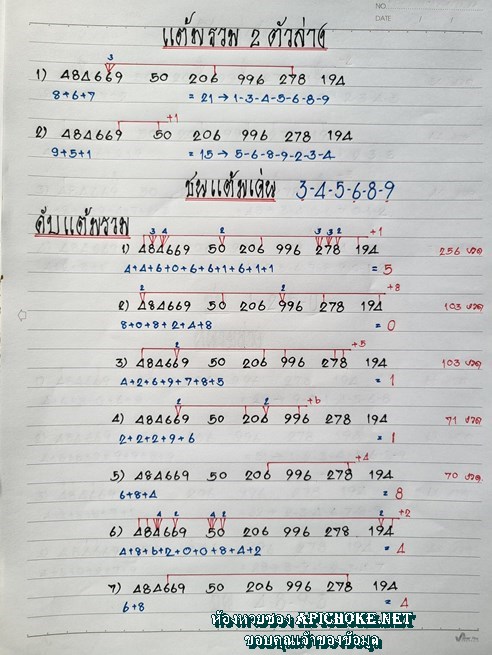 NO.
DATE / /
แต้มรวม 2 ตัวล่าง
3
1) 484669 50 206 996 278 194
8+6+7 = 21 → 1-3-4-5-6-8-9
+1
2) 484669 50 206 996 278 194
9+5+1 = 15 → 5-6-8-9-2-3-4
ชนแต้มเด่น 3-4-5-6-8-9
ดับแต้มรวม
3 4 2 3 3 2 +1
1) 484669 50 206 996 278 194 256 งวด
4+4+6+0+6+6+1+6+1+1 = 5
2 2 +8
2) 484669 50 206 996 278 194 103 งวด
8+0+8+2+4+8 = 0
2 +5
3) 484669 50 206 996 278 194 103 งวด
4+2+6+9+7+8+5 = 1
2 2 +6
4) 484669 50 206 996 278 194 71 งวด
2+2+2+9+6 = 1
+4
5) 484669 50 206 996 278 194 70 งวด
6+8+4 = 8
4 2 4 2 2 +2
6) 484669 50 206 996 278 194
4+8+6+2+0+0+8+4+2 = 4
7) 484669 50 206 996 278 194
6+8 = 4
ห้องหวยซอง APICHOKE.NET
ขอบคุณเจ้าของข้อมูล